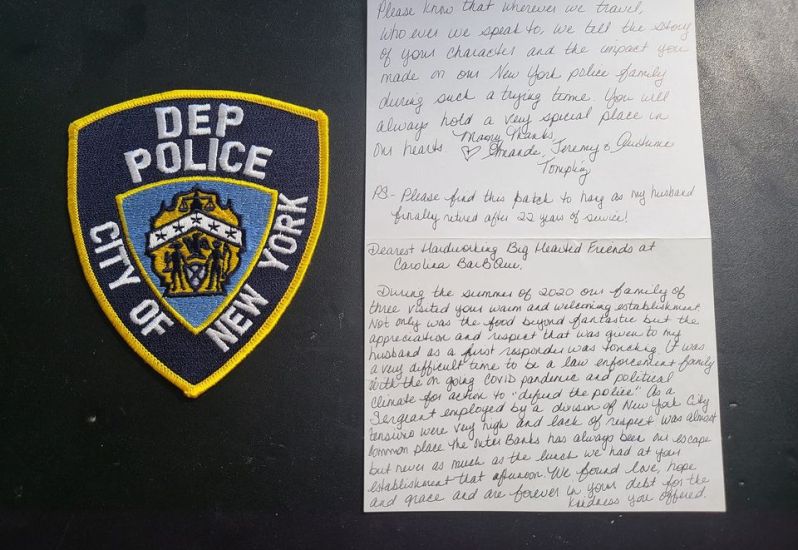 DEP
POLICE
CITY OF
NEW YORK
Please know that wherever we travel,
who ever we speak to, we tell the story
of your character and the impact you
made on our New York police family
during such a trying time. You will
always hold a very special place in
our hearts Many Thanks,
♡ Amanda, Jeremy &
PS- Please find this patch to hang as my husband
finally retired after 22 years of service!
Dearest Hardworking Big Hearted Friends at
Carolina BarBQue,
During the summer of 2020 our family of
three visited your warm and welcoming establishment.
Not only was the food beyond fantastic but the
appreciation and respect that was given to my
husband as a first responder was touching. It was
a very difficult time to be a law enforcement family
with the on going COVID pandemic and political
climate for action to "defund the police" As a
Sergeant employed by a division of New York City
tensions were very high and lack of respect was almost
common place. The Outer Banks has always been our escape
but never as much as the lunch we had at your
establishment that afternoon. We found love, hope
and grace and are forever in your debt for the
kindness you offered.